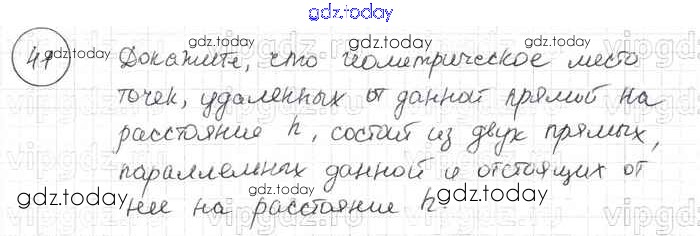 gdz.today
41 Докажите, что геометрическое место
точек, удаленных от данной прямой на
расстояние h, состоит из двух прямых,
параллельных данной и отстоящих от
нее на расстояние h.
gdz.today
gdz.today
gdz.today
gdz.today
gdz.today
gdz.today
gdz.today